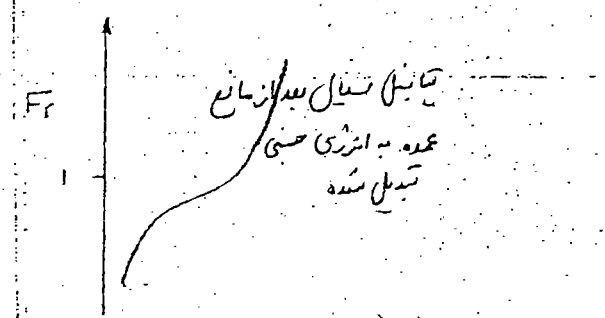 پتانسیل سیال بعد از مانع
Fr
عمده به انرژی جنبشی
1
تبدیل شده